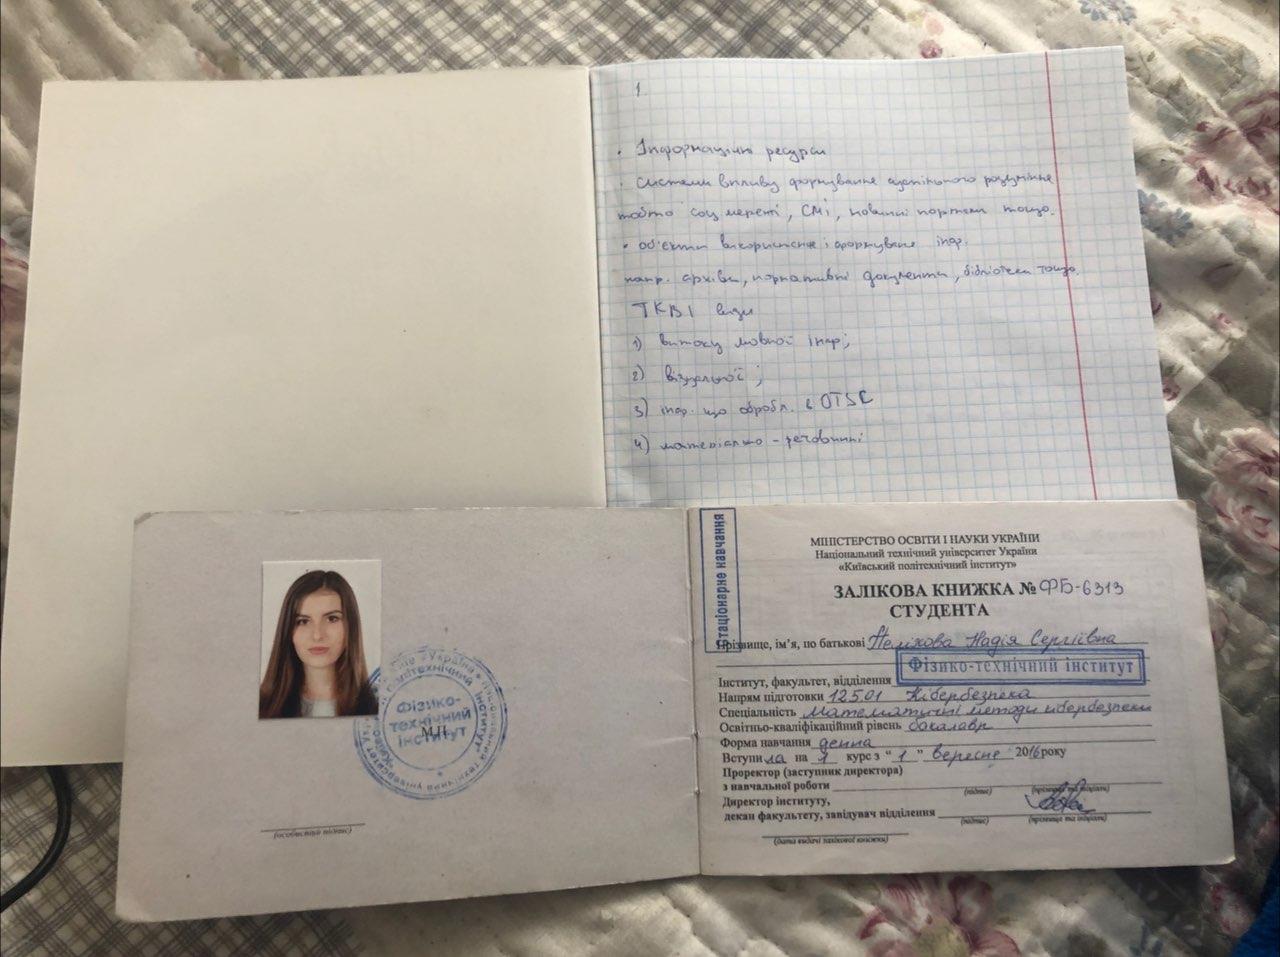 1.
· Інформаційні ресурси
· системи впливу формування суспільного розуміння
тобто соц мережі, СМІ, новинні портали тощо.
· об'єкти використання і формування інф.
напр. архіви, нормативні документи, бібліотеки тощо.
ТКВІ види
1) витоку мовної інф;
2) візуальної;
3) інф. що обробл. в OTSC
4) матеріально - речовинні
Стаціонарне навчання
МІНІСТЕРСТВО ОСВІТИ І НАУКИ УКРАЇНИ
Національний технічний університет України
«Київський політехнічний інститут»
ЗАЛІКОВА КНИЖКА № ФБ-6313
СТУДЕНТА
Прізвище, ім'я, по батькові Надія Сергіївна
Інститут, факультет, відділення Фізико-технічний інститут
Напрям підготовки 125.01 Кібербезпека
Спеціальність Математичні методи кібербезпеки
Освітньо-кваліфікаційний рівень бакалавр
Форма навчання денна
Вступила на 1 курс з “ 1 ” вересня 2016 року
Проректор (заступник директора)
з навчальної роботи
(підпис) (прізвище та ініціали)
Директор інституту,
декан факультету, завідувач відділення
(підпис) (прізвище та ініціали)
(дата видачі залікової книжки)
Фізико-
технічний
інститут
М.П.
(особистий підпис)